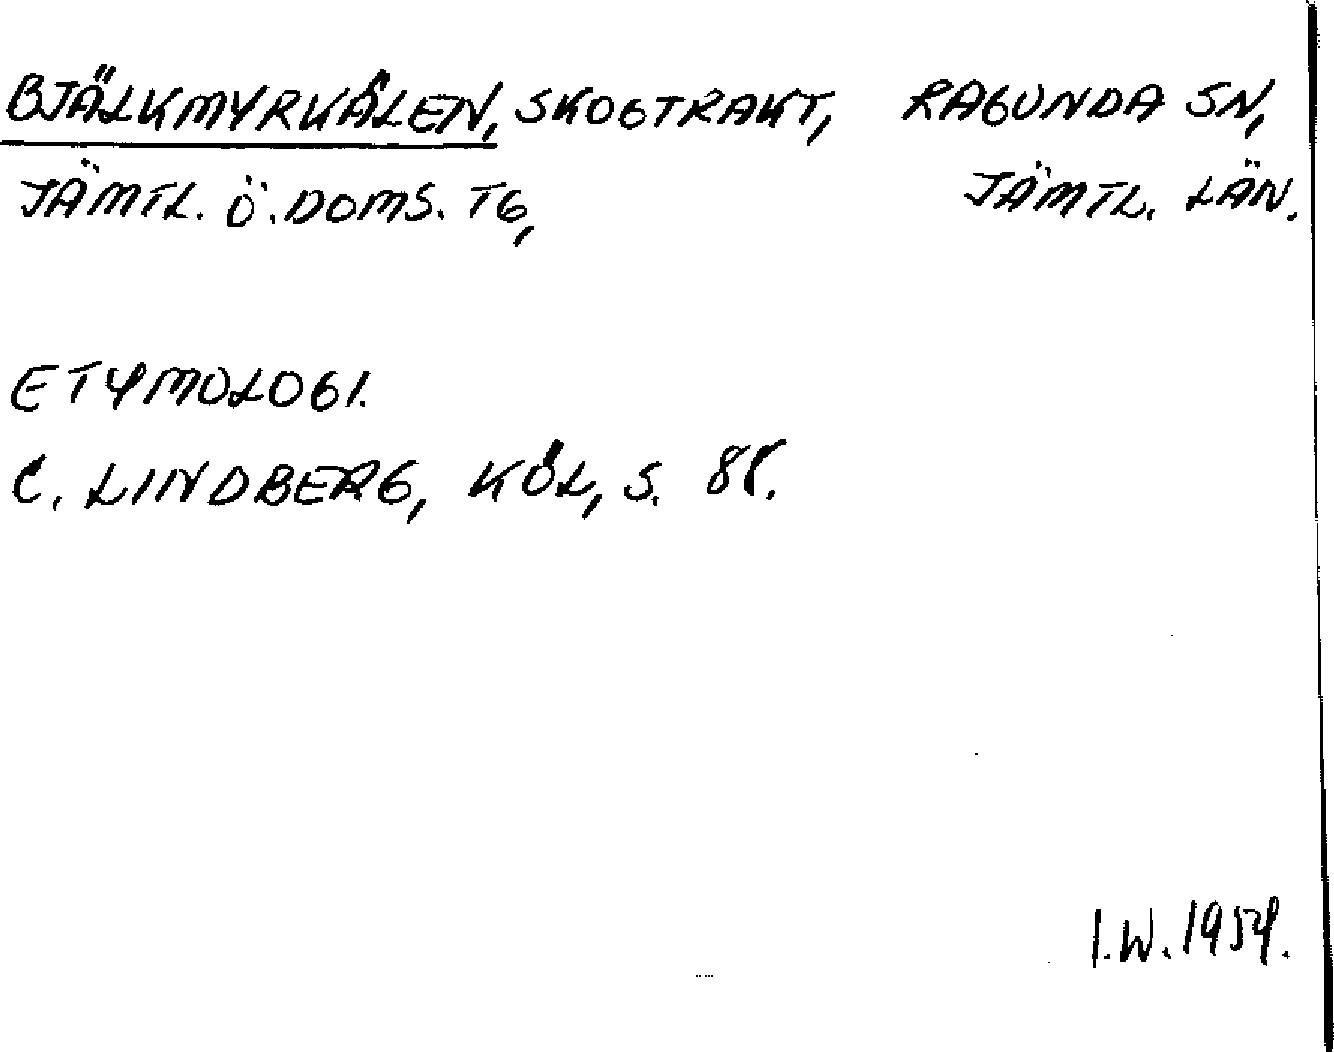 BJÄLKMYRKÅLEN, SKOGTRAKT, RAGUNDA SN,
JÄMTL. Ö. DOMS. TG, JÄMTL. LÄN.
ETYMOLOGI.
C. LINDBERG, KÖL, S. 88.
I.W. 1954.